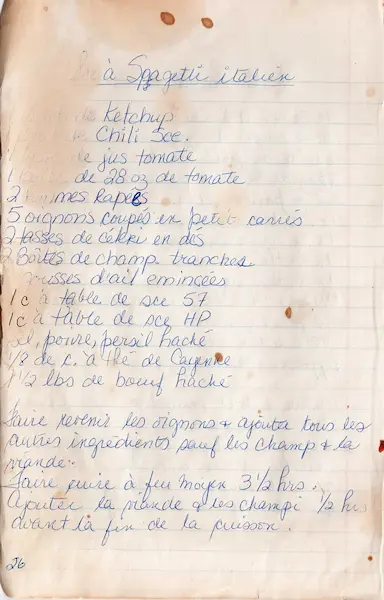 à Spagetti italien
de Ketchup
Chili Sce.
jus tomate
de 28 oz de tomate
2 mes Rapées
5 oignons coupés en petit carrés
2 tasses de céléri en dés
2 Boîtes de champ tranches
ousses d'ail emincées
1 c à table de sce 57
1 c à table de sce HP
sel, poivre, persil haché
1/8 de c. à thé de Cayenne
1 1/2 lbs de boeuf haché
Faire revenir les oignons & ajouter tous les
autres ingrédients sauf les champ & la
viande.
Faire cuire à feu moyen 3 1/2 hrs.
Ajouter la viande & les champi 1/2 hrs
avant la fin de la cuisson.
26